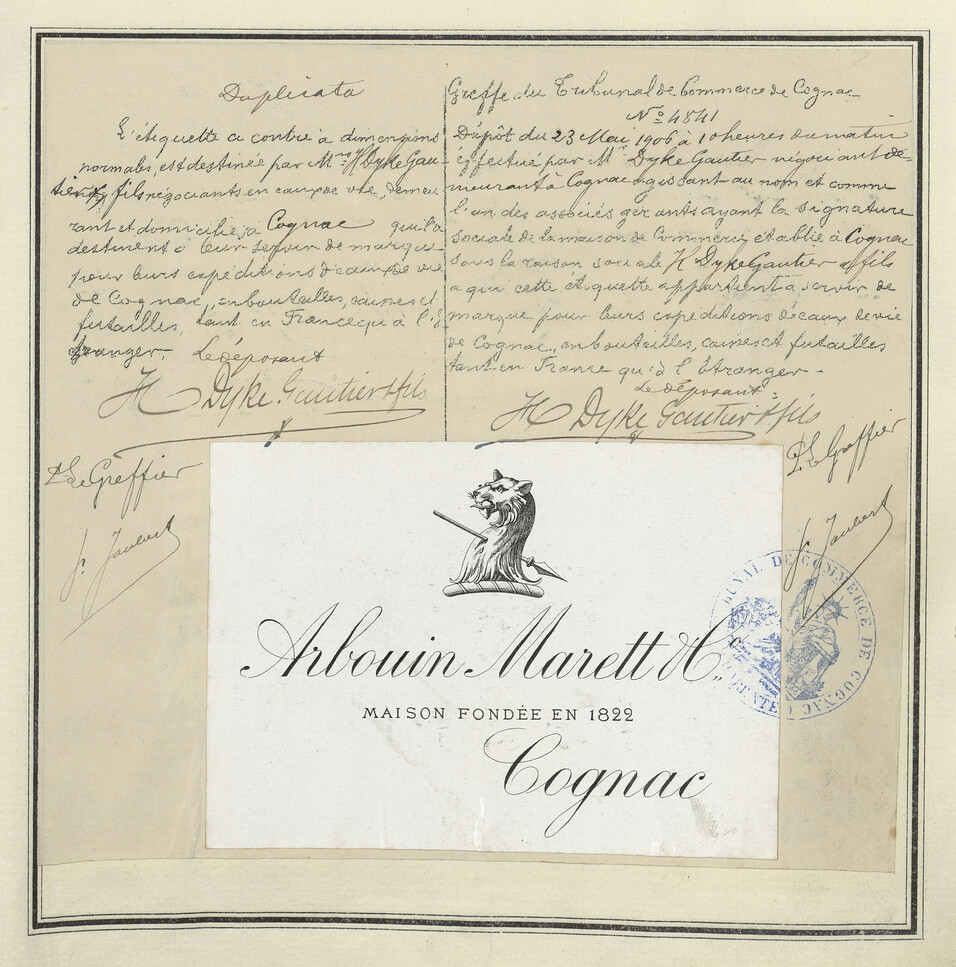 Duplicata
L'étiquette ci contre à dimensions
normales, est destinée par Mrs H Dyke Gau-
tier & fils négociants en eaux de vie, demeu
rant et domiciliés à Cognac qu'ils
destinent à leur servir de marque
pour leurs expéditions d'eaux de vie
de Cognac, en bouteilles, caisses et
futailles, tant en France qu'à l'é-
tranger. Le déposant
H Dyke Gautier & fils
Le Greffier
Greffe du Tribunal de Commerce de Cognac
No 4841
Dépôt du 23 Mai 1906 à 10 heures du matin
effectué par Mr Dyke Gautier négociant de-
meurant à Cognac agissant au nom et comme
l'un des associés gérants ayant la signature
sociale de la maison de Commerce établie à Cognac
sous la raison sociale H Dyke Gautier & fils
a qui cette étiquette appartient à servir de
marque pour leurs expéditions d'eaux de vie
de Cognac, en bouteilles, caisses et futailles
tant en France qu'à l'Étranger -
Le déposant
H Dyke Gautier & fils
Le Greffier
Arbouin Marett & Co
MAISON FONDÉE EN 1822
Cognac
BUNAL DE COMMERCE DE COGNAC